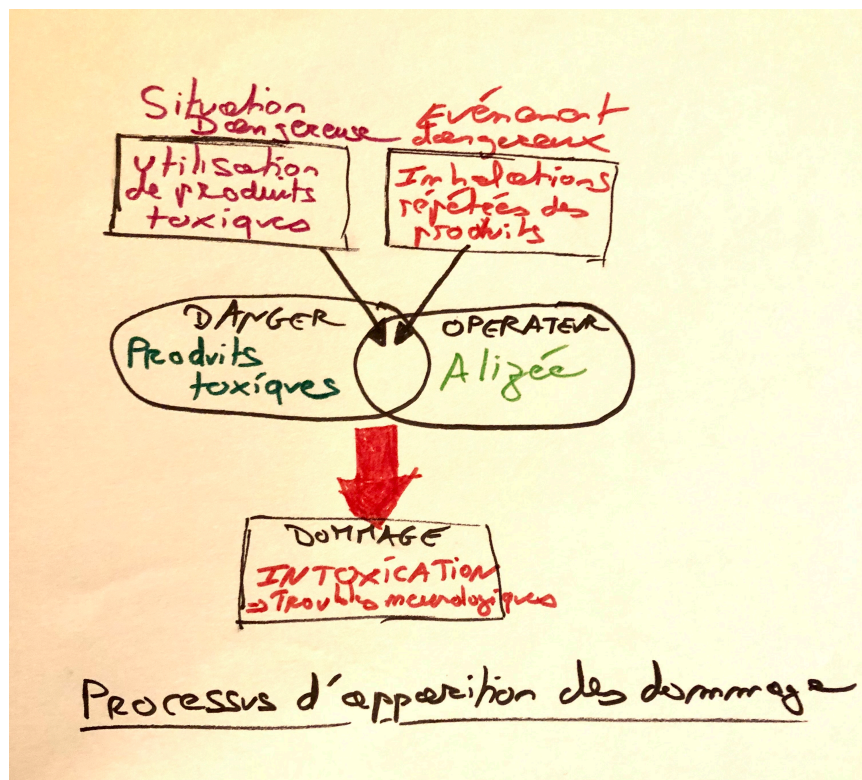 Situation
Dangereuse
Evénement
dangereux
Utilisation
de produits
toxiques
Inhalations
répétées des
produits
DANGER
Produits
toxiques
OPERATEUR
Alizée
DOMMAGE
INTOXICATION
=> Troubles neurologiques
Processus d'apparition des dommage